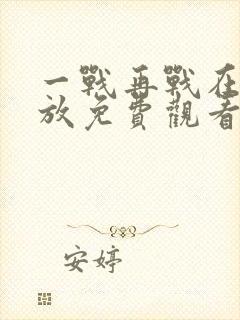 一戰再戰在
放免費觀看
安婷